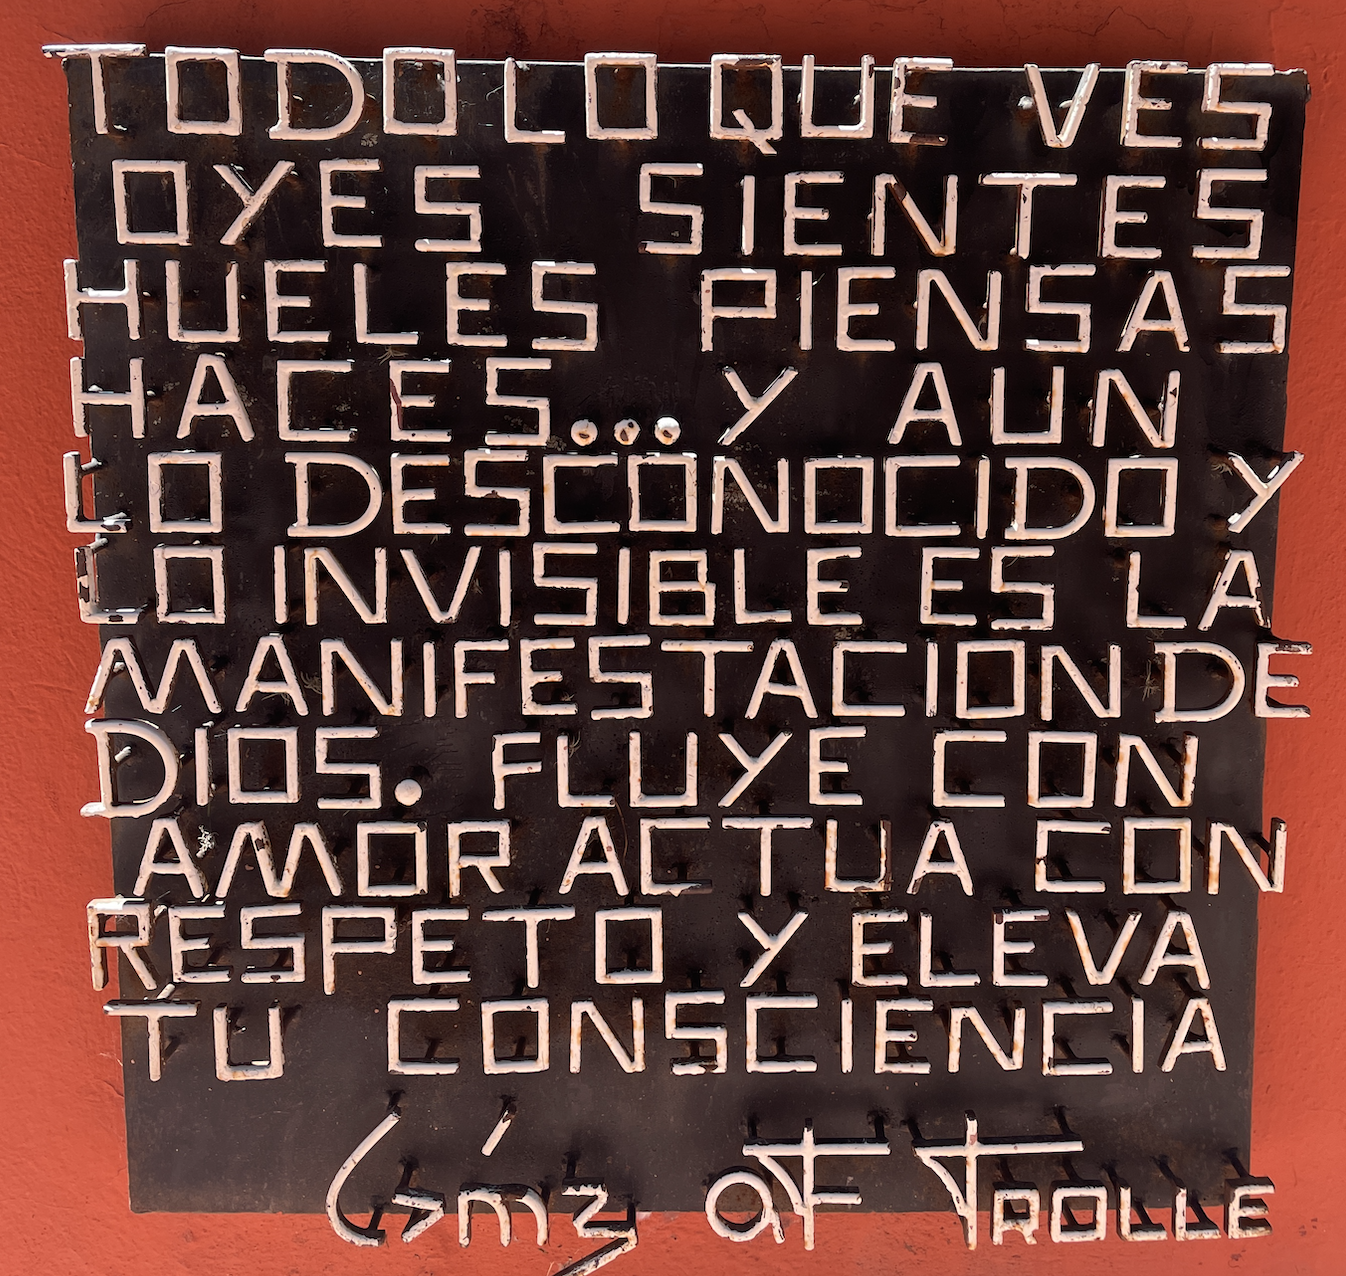 TODO LO QUE VES
OYES SIENTES
HUELES PIENSAS
HACES... Y AUN
LO DESCONOCIDO Y
LO INVISIBLE ES LA
MANIFESTACION DE
DIOS. FLUYE CON
AMOR ACTUA CON
RESPETO Y ELEVA
TU CONSCIENCIA
AF TROLLE